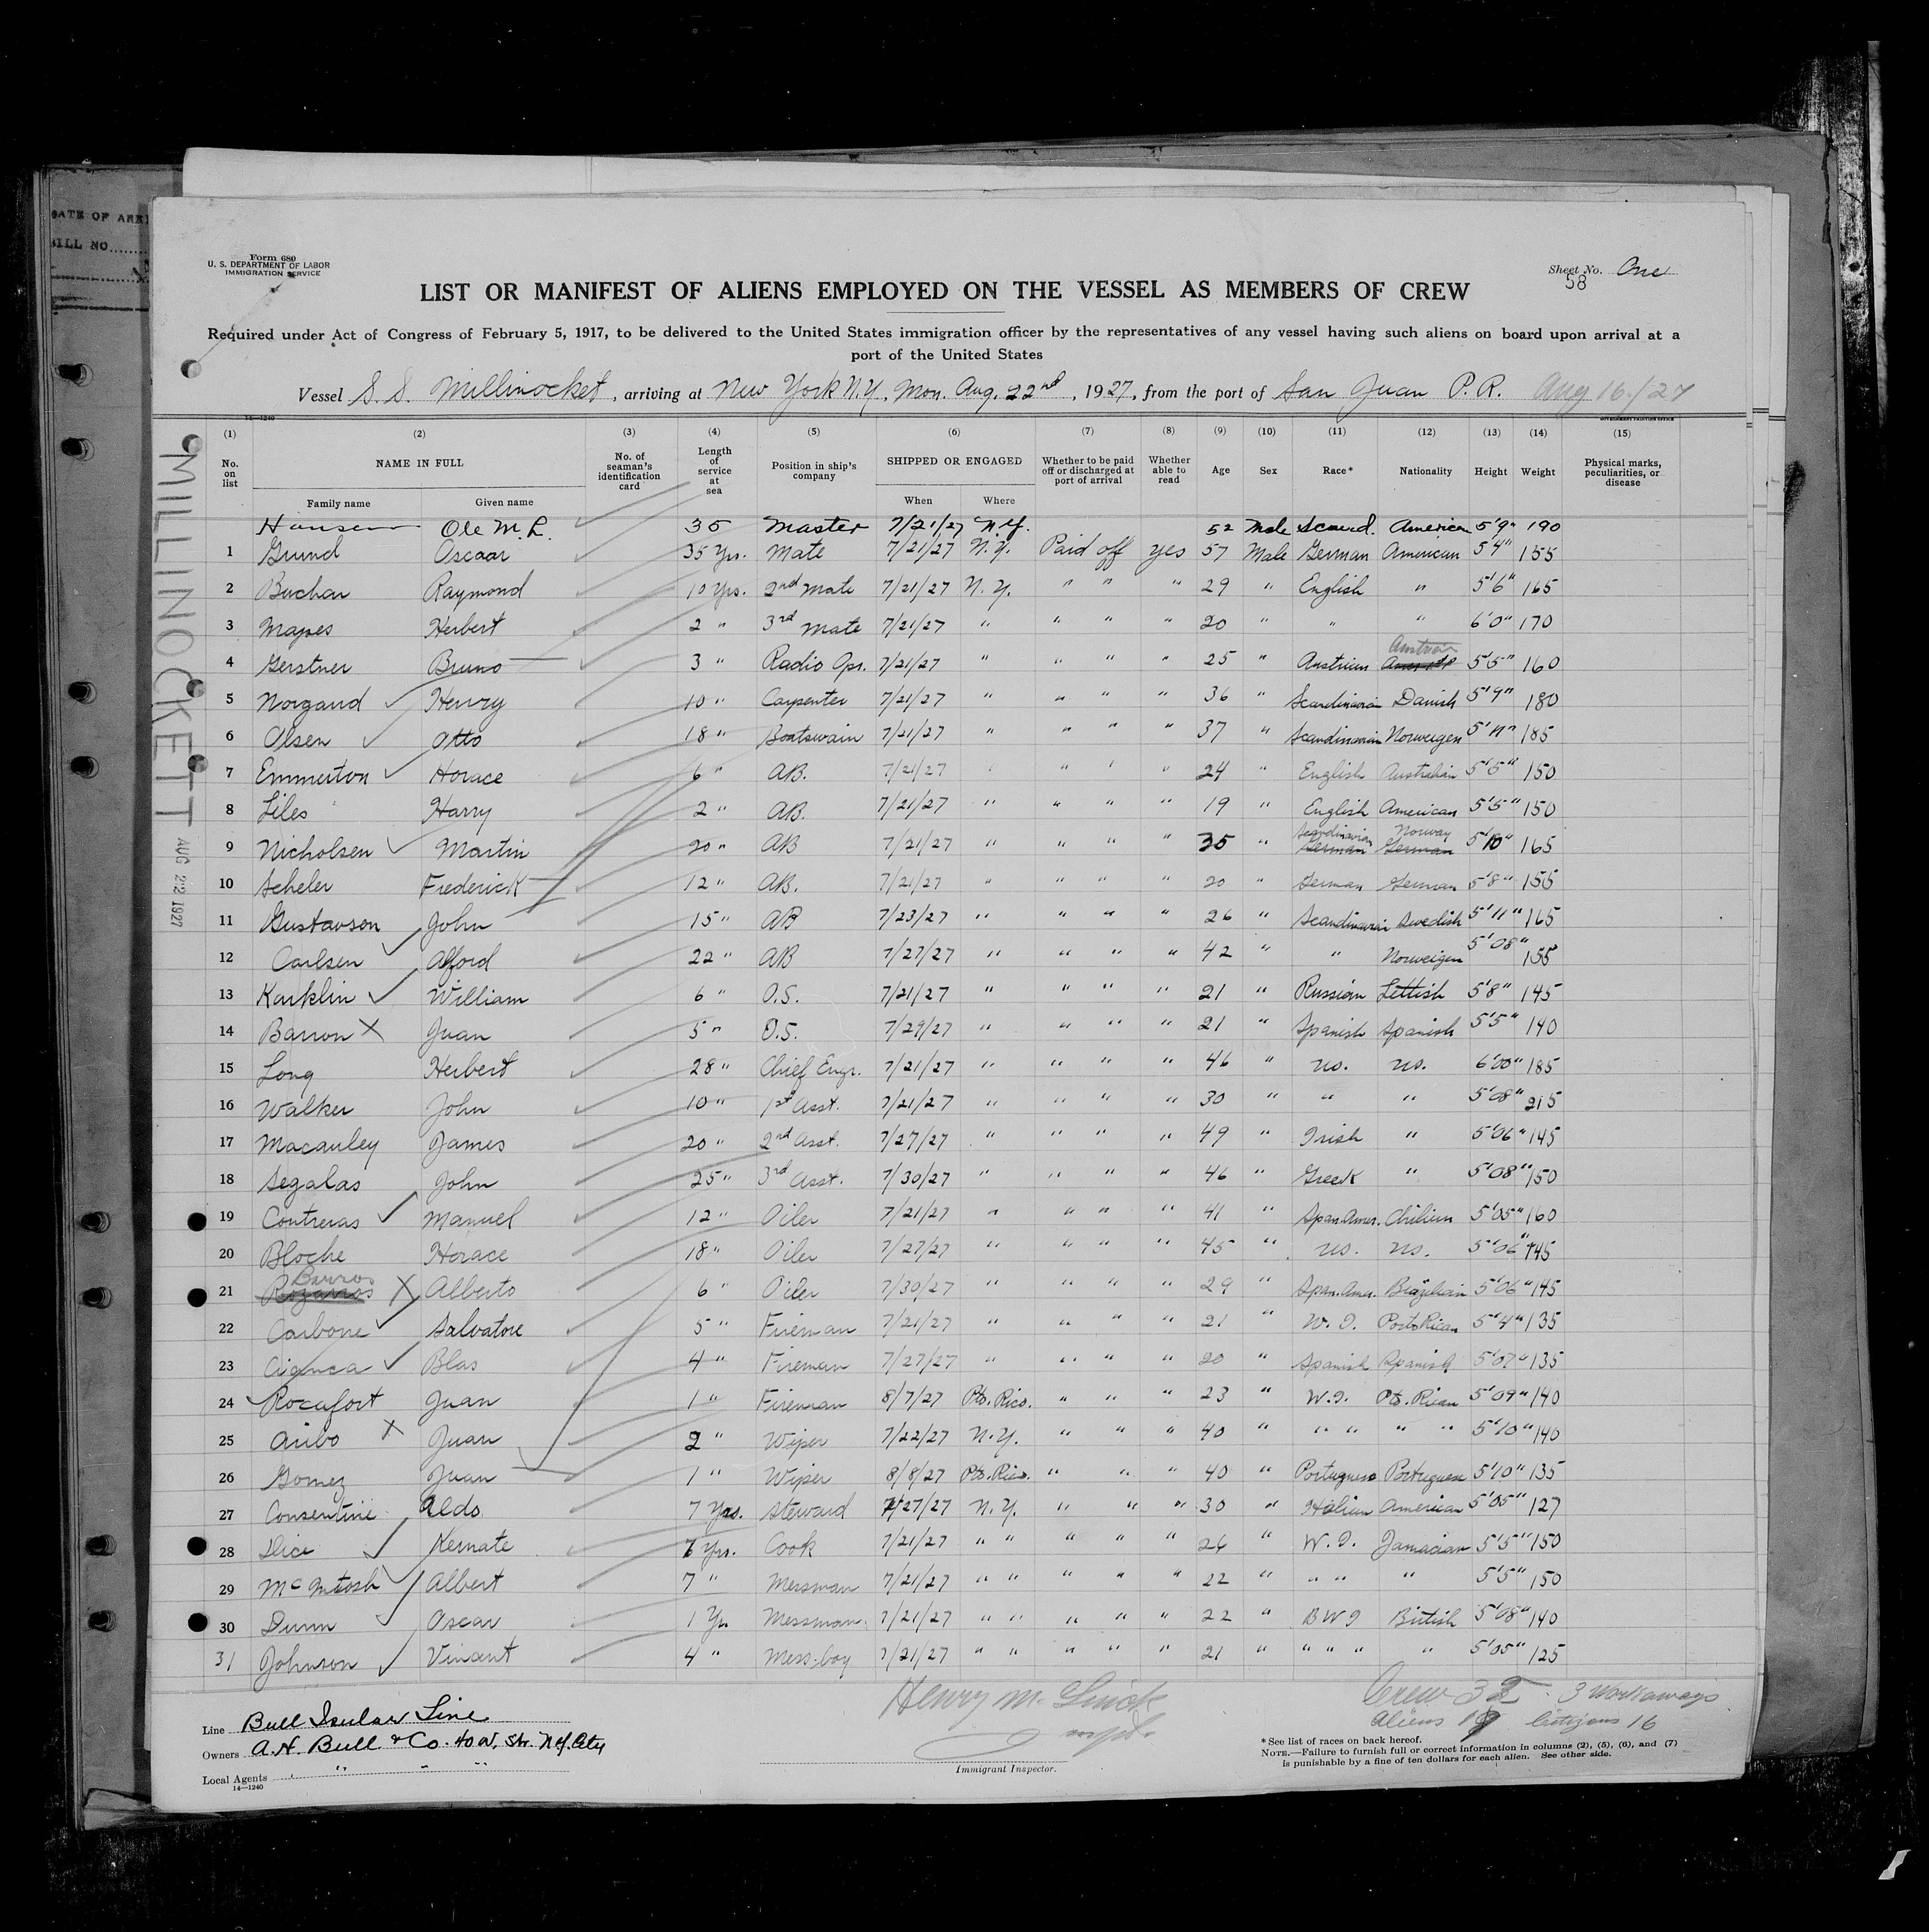 DATE OF ARRI
BILL NO.
Form 680
U. S. DEPARTMENT OF LABOR
IMMIGRATION SERVICE
Sheet No. One
58
LIST OR MANIFEST OF ALIENS EMPLOYED ON THE VESSEL AS MEMBERS OF CREW
Required under Act of Congress of February 5, 1917, to be delivered to the United States immigration officer by the representatives of any vessel having such aliens on board upon arrival at a
port of the United States
Vessel S. S. Millinocket, arriving at New York N.Y., Mon. Aug. 22nd, 1927, from the port of San Juan P. R. Aug 16./27
14—1240 GOVERNMENT PRINTING OFFICE
MILLINOCKETT AUG 22 1927
(1) (2) (3) (4) (5) (6) (7) (8) (9) (10) (11) (12) (13) (14) (15)
No. on list NAME IN FULL No. of seaman's identification card Length of service at sea Position in ship's company SHIPPED OR ENGAGED Whether to be paid off or discharged at port of arrival Whether able to read Age Sex Race* Nationality Height Weight Physical marks, peculiarities, or disease
Family name Given name When Where
Hansen Ole M. L. 35 Master 7/21/27 N.Y. 52 Male Scand. American 5'9" 190
1 Grund Oscaar 35 Yrs. Mate 7/21/27 N.Y. Paid off yes 57 Male German American 5'4" 155
2 Buchan Raymond 10 Yrs. 2nd Mate 7/21/27 N.Y. " " " 29 " English " 5'6" 165
3 Mapes Herbert 2 " 3rd Mate 7/21/27 " " " " 20 " " " 6'0" 170
4 Gerstner Bruno 3 " Radio Opr. 7/21/27 " " " " 25 " Austrian Austrian 5'5" 160
5 Norgard Henry 10 " Carpenter 7/21/27 " " " " 36 " Scandinavian Danish 5'9" 180
6 Olsen Otto 18 " Boatswain 7/21/27 " " " " 37 " Scandinavian Norweigen 5'11" 185
7 Emmerton Horace 6 " AB. 7/21/27 " " " " 24 " English Australian 5'5" 150
8 Liles Harry 2 " AB. 7/21/27 " " " " 19 " English American 5'5" 150
9 Nicholsen Martin 20 " AB 7/21/27 " " " " 35 " Scandinavian German Norway German 5'10" 165
10 Scheler Frederick 12 " AB. 7/21/27 " " " " 20 " German German 5'8" 155
11 Gustavson John 15 " AB 7/23/27 " " " " 26 " Scandinavian Swedish 5'11" 165
12 Carlsen Alford 22 " AB 7/27/27 " " " " 42 " " Norweigen 5'08" 155
13 Karklin William 6 " O.S. 7/21/27 " " " " 21 " Russian Lettish 5'8" 145
14 Barron X Juan 5 " O.S. 7/29/27 " " " " 21 " Spanish Spanish 5'5" 140
15 Long Herbert 28 " Chief Engr. 7/21/27 " " " " 46 " US. US. 6'00" 185
16 Walker John 10 " 1st Asst. 7/21/27 " " " " 30 " " " 5'08" 215
17 Macauley James 20 " 2nd Asst. 7/27/27 " " " " 49 " Irish " 5'06" 145
18 Segalas John 25 " 3rd Asst. 7/30/27 " " " " 46 " Greek " 5'08" 150
19 Contreras Manuel 12 " Oiler 7/21/27 " " " " 41 " Span. Amer. Chilian 5'05" 160
20 Bloche Horace 18 " Oiler 7/27/27 " " " " 45 " US. US. 5'06" 145
21 Barros X Alberto 6 " Oiler 7/30/27 " " " " 29 " Span. Amer. Brazilian 5'06" 145
22 Carbone Salvatore 5 " Fireman 7/21/27 " " " " 21 " W. I. Porto Rican 5'4" 135
23 Cigenca Blas 4 " Fireman 7/27/27 " " " " 20 " Spanish Spanish 5'07" 135
24 Rocafort Juan 1 " Fireman 8/7/27 Pto. Rico. " " " 23 " W.I. Pto. Rican 5'09" 140
25 Aribo X Juan 2 " Wiper 7/22/27 N.Y. " " " 40 " " " " " 5'10" 140
26 Gomez Juan 1 " Wiper 8/8/27 Pto. Rico. " " " 40 " Portuguese Portuguese 5'10" 135
27 Consentine Aldo 7 Yrs. Steward 7/27/27 N.Y. " " " 30 " Italian American 5'05" 127
28 Dice Kernate 6 Yrs. Cook 7/21/27 " " " " " 26 " W. I. Jamacian 5'5" 150
29 McIntosh Albert 7 " Messman 7/21/27 " " " " " 22 " " " " 5'5" 150
30 Dunn Oscar 1 Yr. Messman 7/21/27 " " " " " 22 " B W I British 5'08" 140
31 Johnson Vincent 4 " Mess-boy 7/21/27 " " " " " 21 " " " " " 5'05" 125
Crew 32 - 3 Workaways
Aliens Citizens 16
Line Bull Insular Line
Owners A. H. Bull & Co. 40 W. Str. N.Y. City
Local Agents " " "
14—1240
Immigrant Inspector.
*See list of races on back hereof.
NOTE.—Failure to furnish full or correct information in columns (2), (5), (6), and (7)
is punishable by a fine of ten dollars for each alien. See other side.